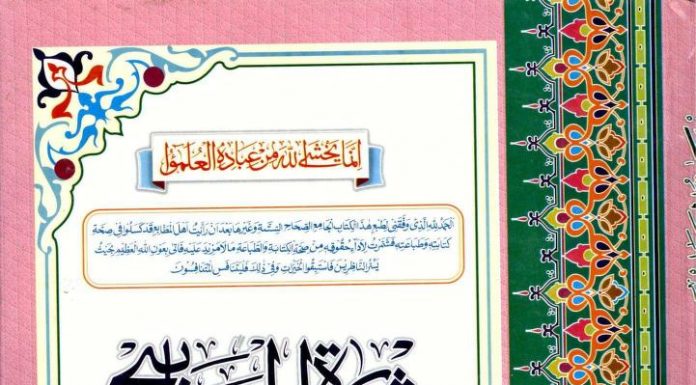 اِنَّمَا يَخْشَى اللهَ مِنْ عِبَادِهِ الْعُلَمٰٓؤُا
الحمد لله الذی وفقنی لطبع هذا الكتاب الجامع الصحاح الستة وغیرها بعد ان رأیت اهل المطابع قد كسلوا فی صحة
كتابته وطباعته فشمرت لاداء حقوقه من صحة الكتابة والطباعة ما لا مزید علیه فاتی بعون الله العظیم بحیث
یسر الناظرین فاستبقوا الخیرات وفی ذلك فلیتنافس المتنافسون